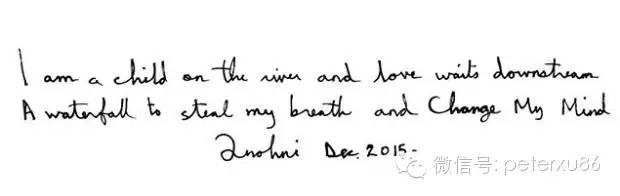 I am a child on the river and love waits downstream
A waterfall to steal my breath and Change My Mind
Anohni Dec. 2015-
微信号: peterxu86